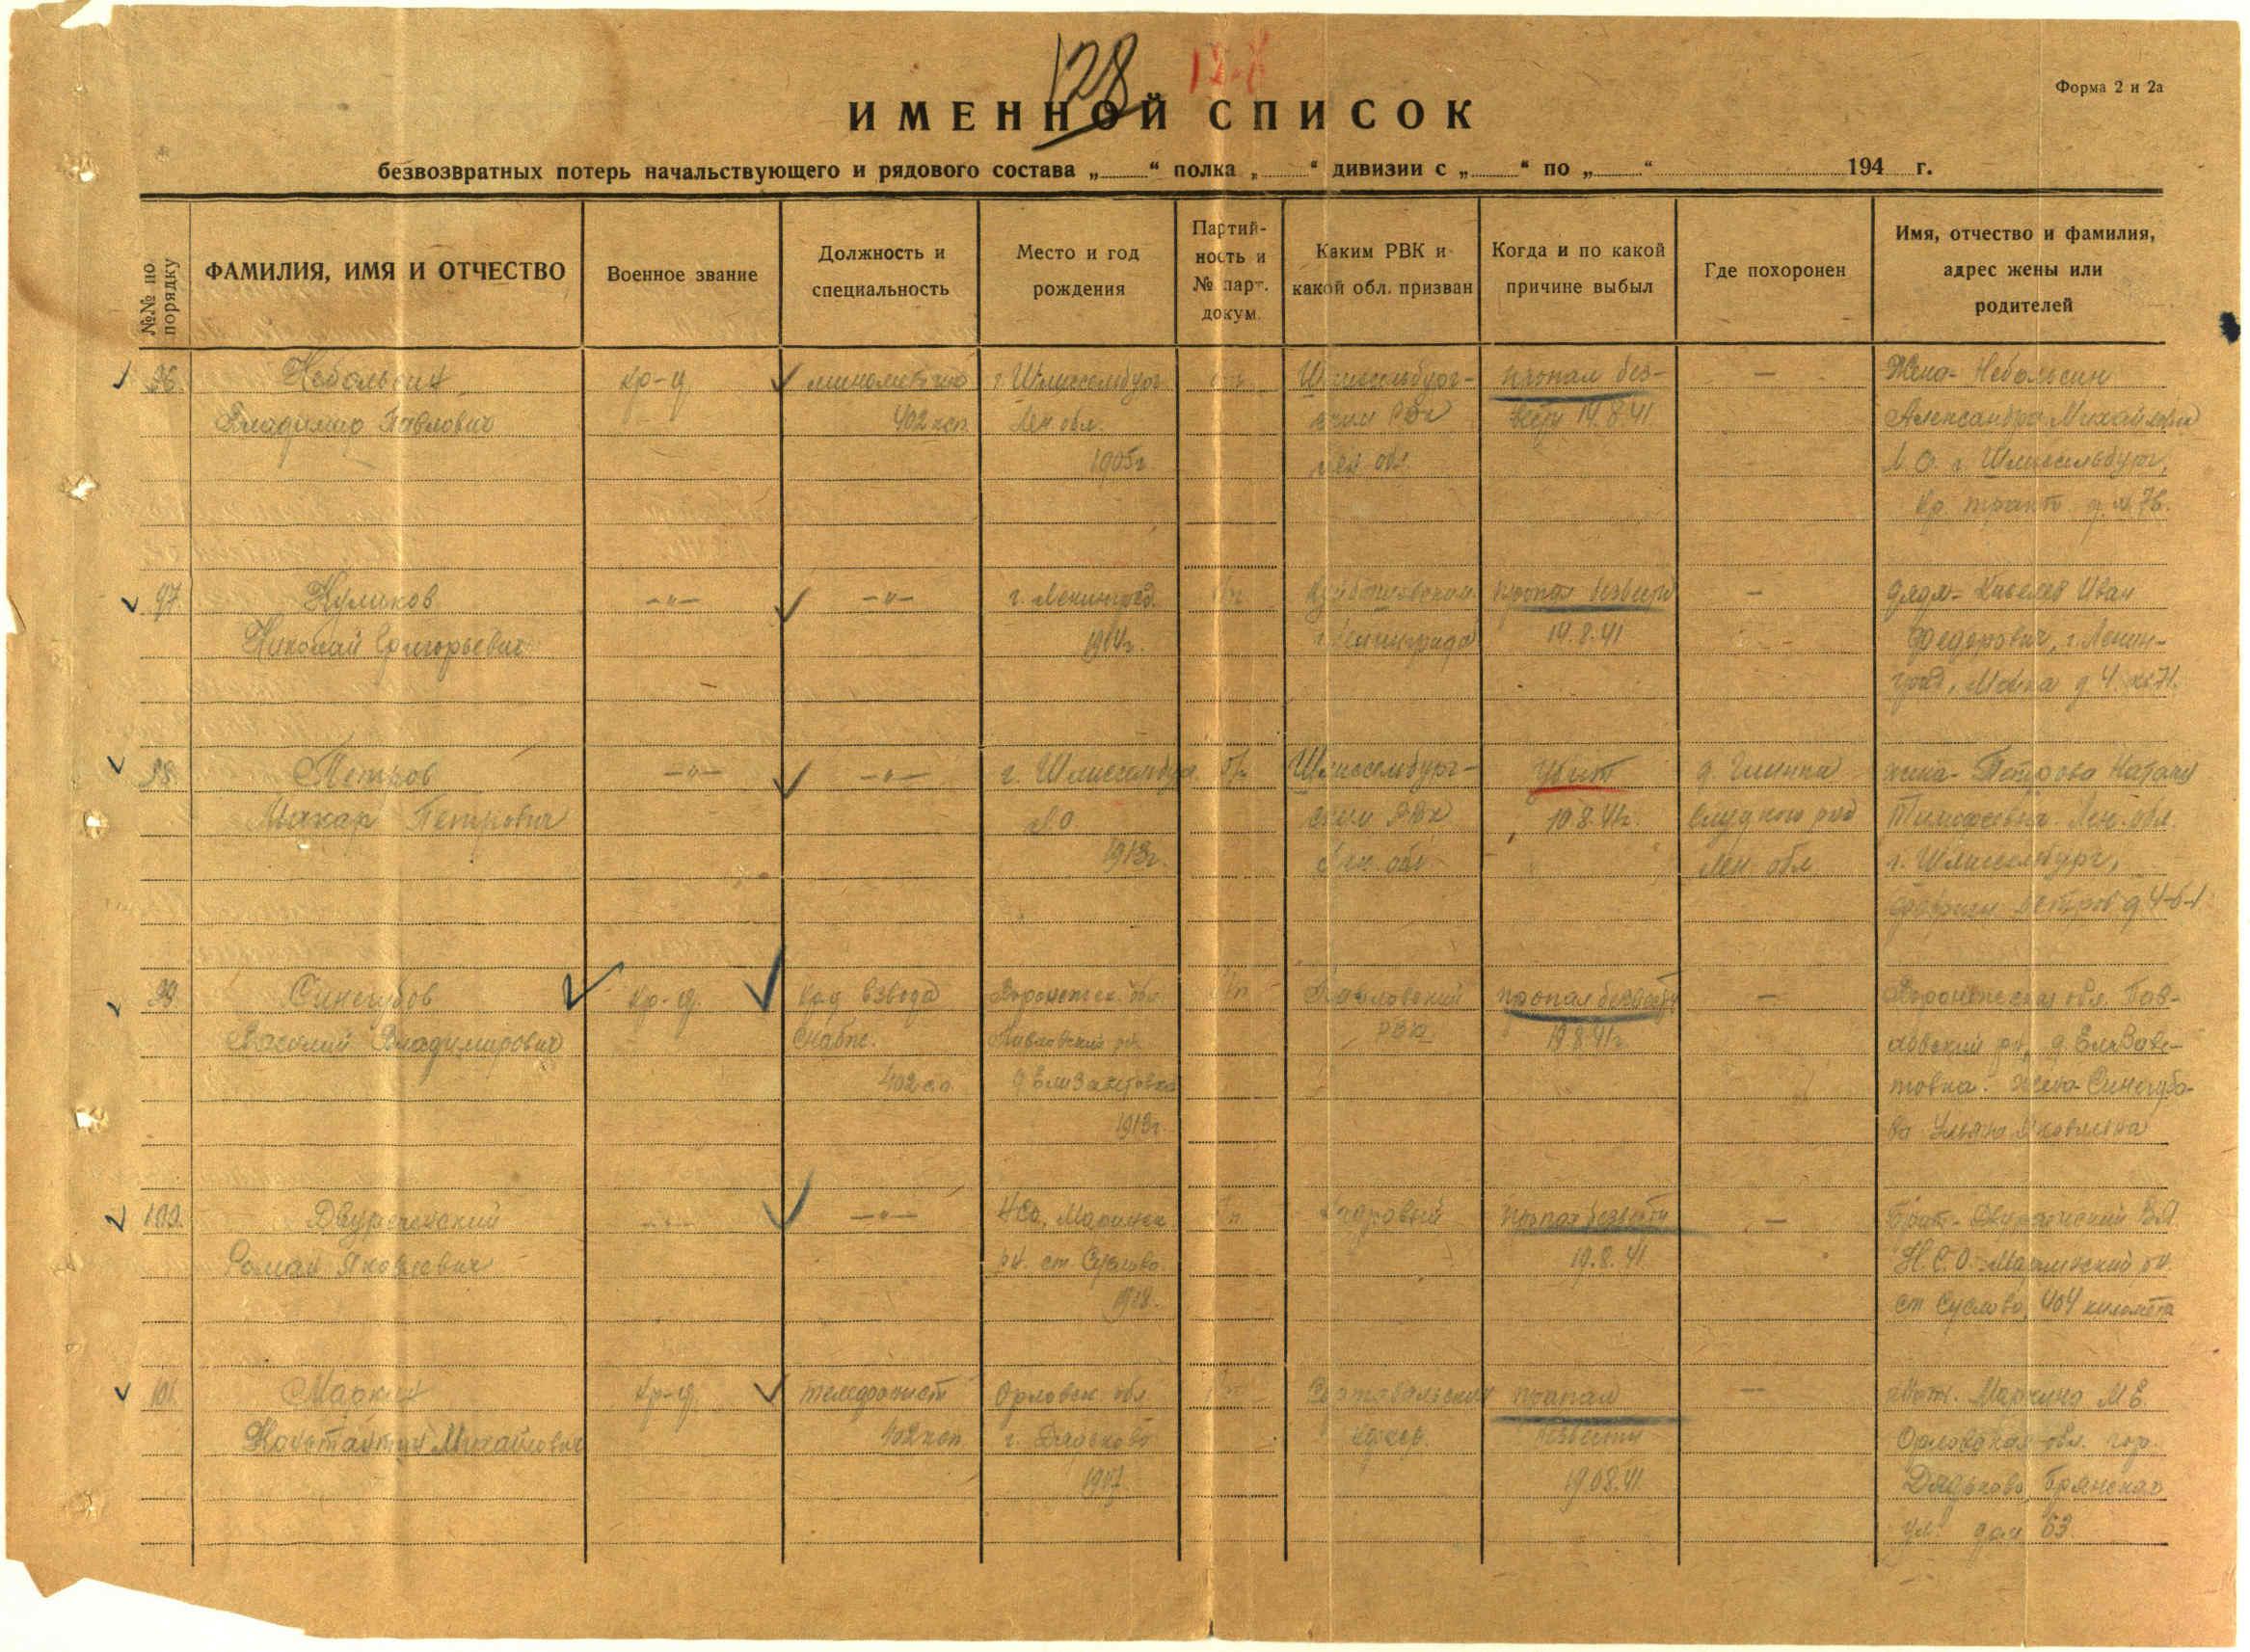 128
128
Форма 2 и 2а
ИМЕННОЙ СПИСОК
безвозвратных потерь начальствующего и рядового состава „ “ полка „ “ дивизии с „ “ по „ “ 194 г.
№№ по порядку
ФАМИЛИЯ, ИМЯ И ОТЧЕСТВО
Военное звание
Должность и
специальность
Место и год
рождения
Партий-
ность и
№ парт.
докум.
Каким РВК и
какой обл. призван
Когда и по какой
причине выбыл
Где похоронен
Имя, отчество и фамилия,
адрес жены или
родителей
96. Небольсин
Владимир Павлович
кр-ц
402 ксп
г. Шлиссельбург
Лен обл.
1905г
Шлиссельбург-
ским РВК
Лен обл.
пропал без-
вести 19.8.41
—
Жена- Небольсин
Александра Михайловна
Л.О. г. Шлиссельбург,
кр. тракт д. № 76.
97 Куликов
Николай Григорьевич
—"—
—"—
г. Ленинград
1904г.
Ленинграда
пропал безвести
19.8.41
—
дядя- Киселев Иван
Федорович, г. Ленин-
град, Мойка д. 4
98. Петров
Макар Петрович
—"—
—"—
г. Шлиссельбург
Л.О
1913г.
б/п
Шлиссельбург-
ским РВК
Лен. обл
Убит
10.8.41г.
д. Глинка
Лен. обл
жена- Петрова
Тимофеевна Лен. обл.
г. Шлиссельбург,
99 Синегубов
Василий Владимирович
кр-ц.
взвода
снабж.
402 сп.
Воронежск. обл
Павловский рн.
д. Елизаветовка
1913г.
Павловский
РВК
пропал безвести
19.8.41г.
—
Воронежская обл. Пав-
ловский рн, д. Елизаве-
товка. жена Синегубо-
ва Ульяна Яковлевна
100. Двуреченский
Роман Яковлевич
—"—
НСО, Мариинск
рн. ст. Суслово
1918.
Кадровый
пропал безвести
19.8.41
—
Брат- Двуреченский В.Я
Н.С.О. Мариинский рн.
ст Суслово, 404 километр
101. Маркин
Константин Михайлович
кр-ц.
телефонист
402 ксп
Орловск. обл
г. Дядьково
1917
пропал
безвести
19.08.41.
—
Мать. Маркина М.Е.
Орловская обл. гор.
Дядьково, Брянская
ул. дом 63.